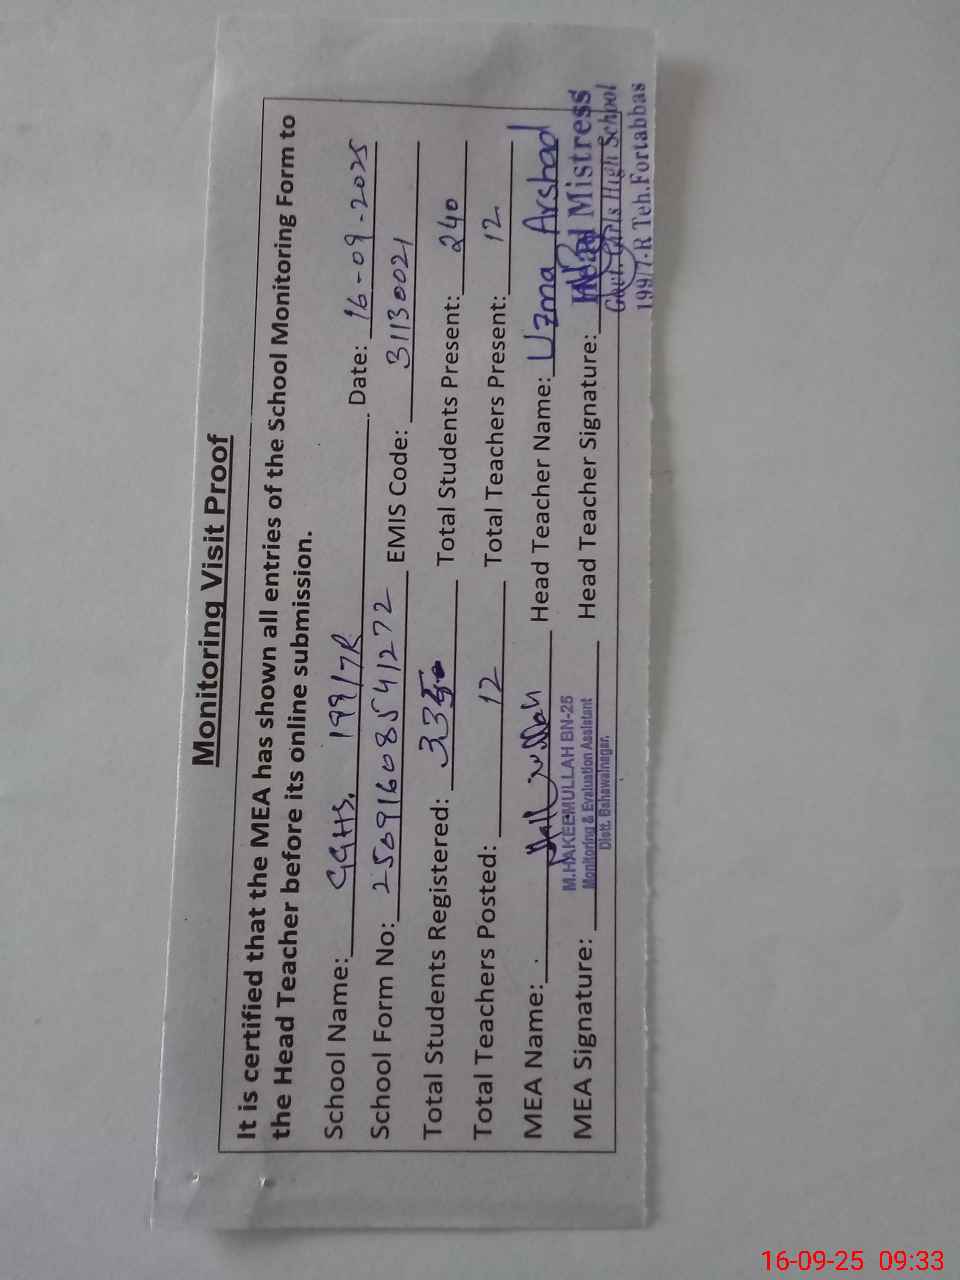 Monitoring Visit Proof
It is certified that the MEA has shown all entries of the School Monitoring Form to
the Head Teacher before its online submission.
School Name: GGHS. 199/7R Date: 16-09-2025
School Form No: 25091608541272 EMIS Code: 31130021
Total Students Registered: Total Students Present: 240
Total Teachers Posted: 12 Total Teachers Present: 12
MEA Name: Head Teacher Name: Uzma Arshad
M.HAKEEMULLAH BN-25
MEA Signature: Monitoring & Evaluation Assistant Head Teacher Signature: Head Mistress
Distt. Bahawalnagar. Govt. Girls High School
199/7-R Teh.Fortabbas
16-09-25 09:33